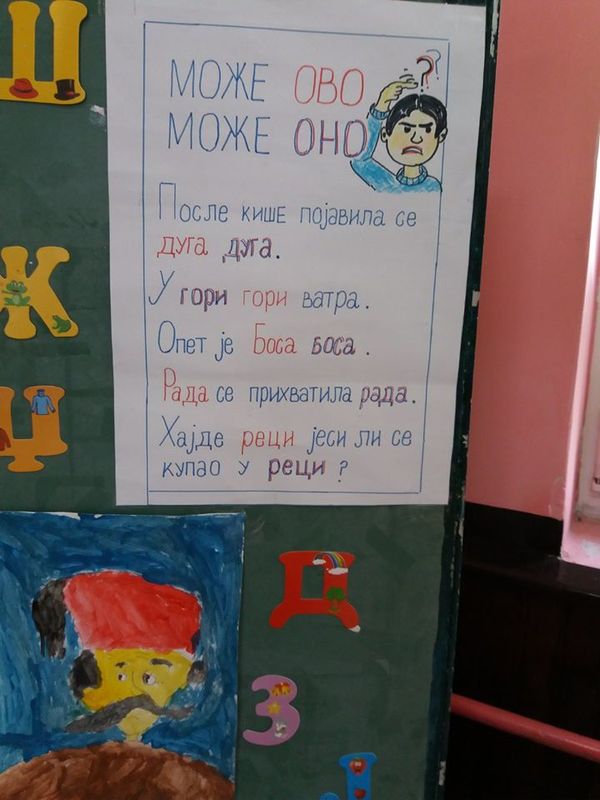 Џ
Ж
Џ
МОЖЕ ОВО
МОЖЕ ОНО
??
После кише појавила се
дуга дуга.
У гори гори ватра.
Опет је Боса боса.
Рада се прихватила рада.
Хајде реци јеси ли се
купао у реци?
Д
З
Ј